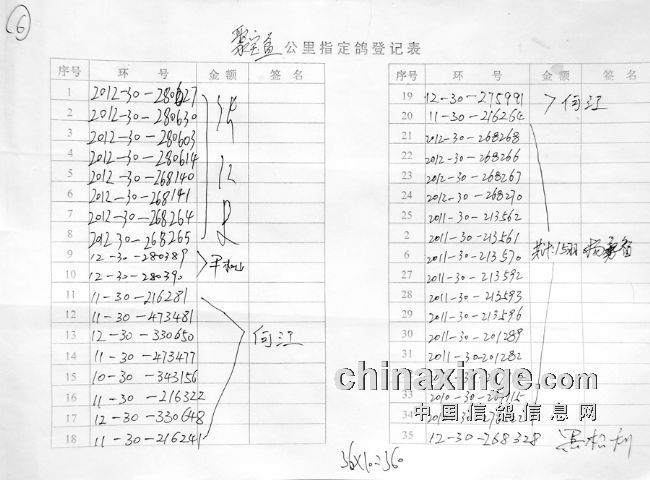 6
聚宝盆公里指定鸽登记表
序号 环 号 金 额 签 名
1 2012-30-280627
2 2012-30-280630
3 2012-30-280603
4 2012-30-280614
5 2012-30-268140
6 2012-30-268141
7 2012-30-268264
8 2012-30-268265
9 12-30-280389
10 12-30-280390
11 11-30-216281
12 11-30-473481
13 12-30-330650
何江
14 11-30-473477
15 10-30-343156
16 11-30-216322
17 12-30-330648
18 11-30-216241
序号 环 号 金 额 签 名
19 12-30-275991
何江
20 11-30-216264
21 2012-30-268268
22 2012-30-268266
23 2012-30-268267
24 2012-30-268270
25 2011-30-213562
2 2011-30-213561
6 2011-30-213570
27 2011-30-213592
28 2011-30-213593
29 2011-30-213596
30 2011-30-201289
31 2011-30-201282
33
34
35 12-30-268328
36×10=360
chinaxinge.com
中国信鸽信息网